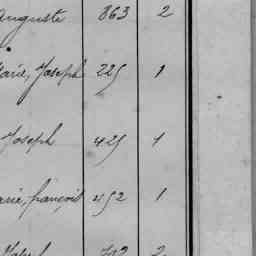 Auguste 863 2
Marie, Joseph 225 1
Joseph 425 1
Marie, françois 452 1
Joseph 2